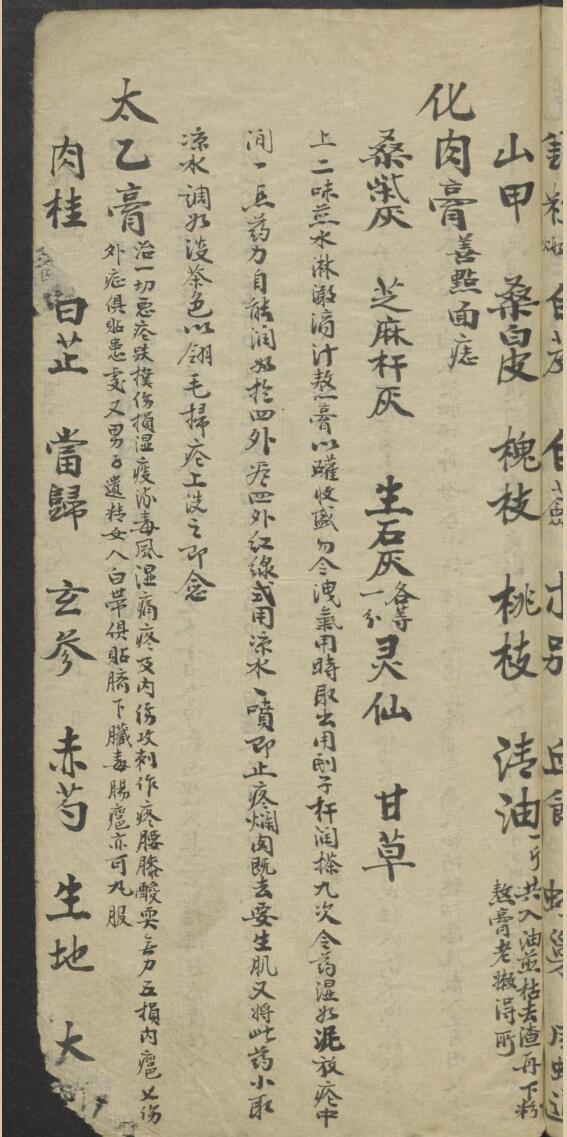 山甲 桑白皮 槐枝 桃枝 清油一斤 共入油煎枯去渣再下粉
熬膏老嫩得所
化肉膏 善點面痣
桑柴灰 芝麻杆灰 生石灰各等一分 灵仙 甘草
上二味煎水淋滴汁熬膏以罐收盛勿令洩氣用時取出用刮子杆润搽九次令药湿如泥放疮中
间一点药力自能润如於四外疮四外红線或用凉水一噴即止疼爛肉既去要生肌又将此药小取
凉水調如淡茶色以翎毛掃疮上洗之即
太乙膏 治一切恶疮跌撲伤損湿痰流毒風湿痛疼及内伤攻刺作疼腰膝酸耎無力五損内癰七伤
外症俱貼患處又男子遺精女人白帶俱貼臍下臓毒腸癰亦可丸服
肉桂 白芷 當歸 玄参 赤芍 生地 大